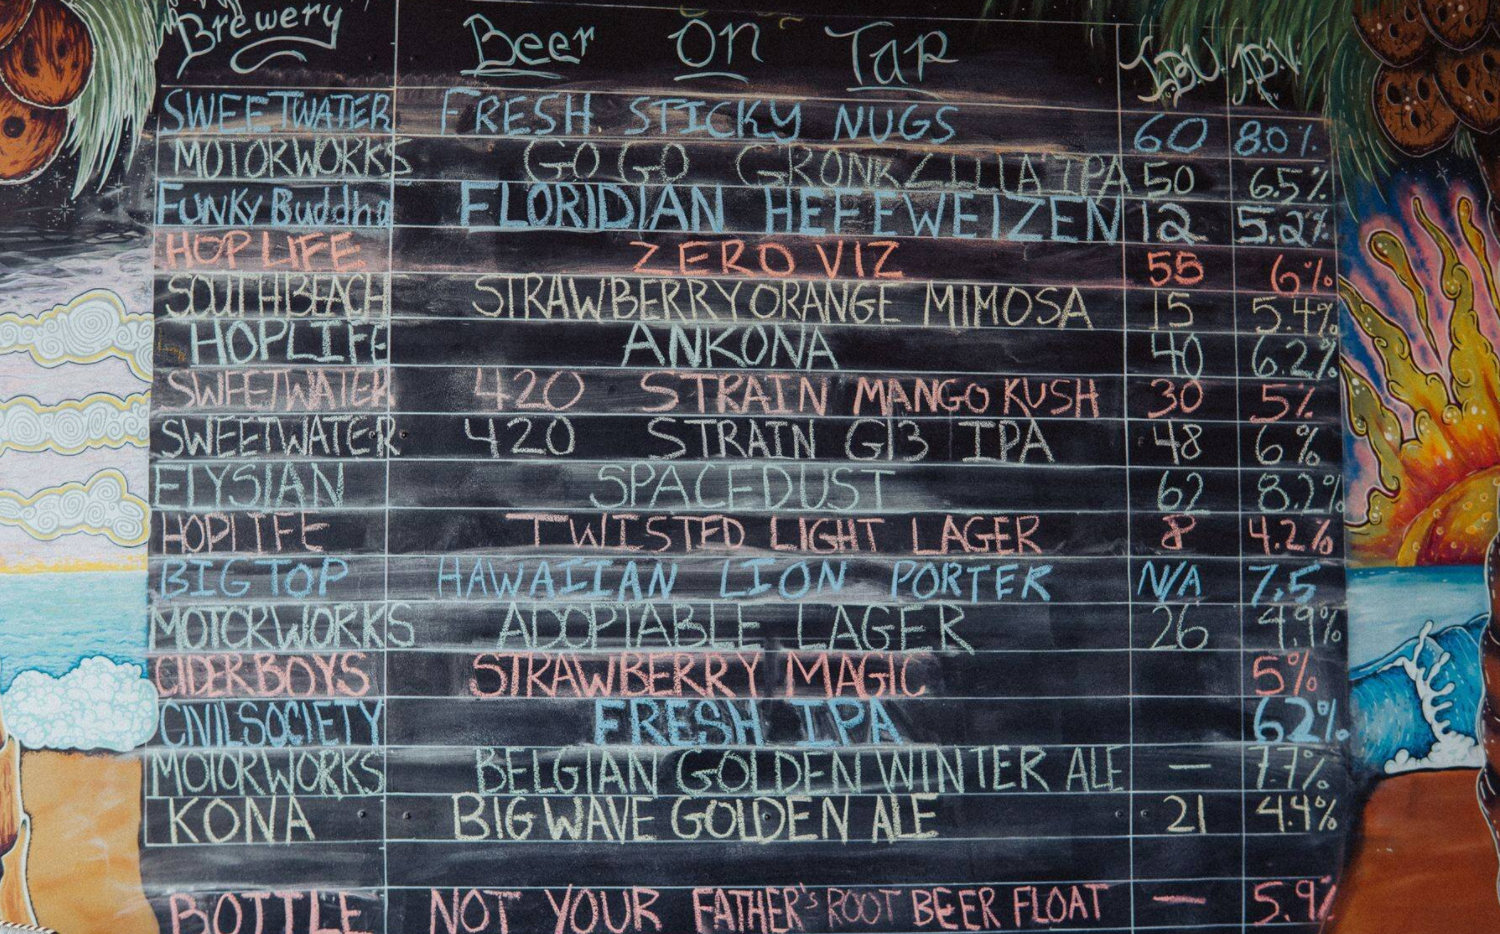 Brewery Beer On Tap I.B.U. A.B.V.
SWEETWATER FRESH STICKY NUGS 60 8.0%
MOTORWORKS GO GO GRONKZILLA IPA 50 6.5%
FUNKY Buddha FLORIDIAN HEFEWEIZEN 12 5.2%
HOP LIFE ZERO VIZ 55 6%
SOUTHBEACH STRAWBERRY ORANGE MIMOSA 15 5.4%
HOPLIFE ANKONA 40 6.2%
SWEETWATER 420 STRAIN MANGO KUSH 30 5%
SWEETWATER 420 STRAIN G13 IPA 48 6%
ELYSIAN SPACEDUST 62 8.2%
HOPLIFE TWISTED LIGHT LAGER 8 4.2%
BIG TOP HAWAIIAN LION PORTER N/A 7.5
MOTORWORKS ADOPTABLE LAGER 26 4.9%
CIDERBOYS STRAWBERRY MAGIC 5%
CIVILSOCIETY FRESH IPA 62%
MOTORWORKS BELGIAN GOLDEN WINTER ALE — 7.7%
KONA BIG WAVE GOLDEN ALE 21 4.4%
BOTTLE NOT YOUR FATHER'S ROOT BEER FLOAT — 5.9%